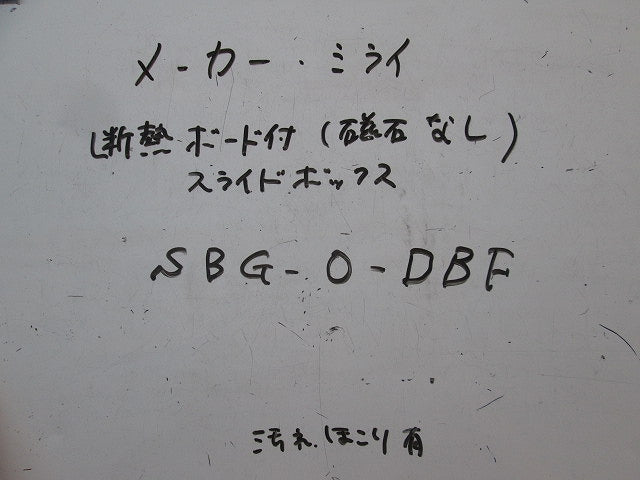 メーカー・ミライ
断熱ボード付(磁石なし)
スライドボックス
SBG-O-DBF
汚れ、ほこり有